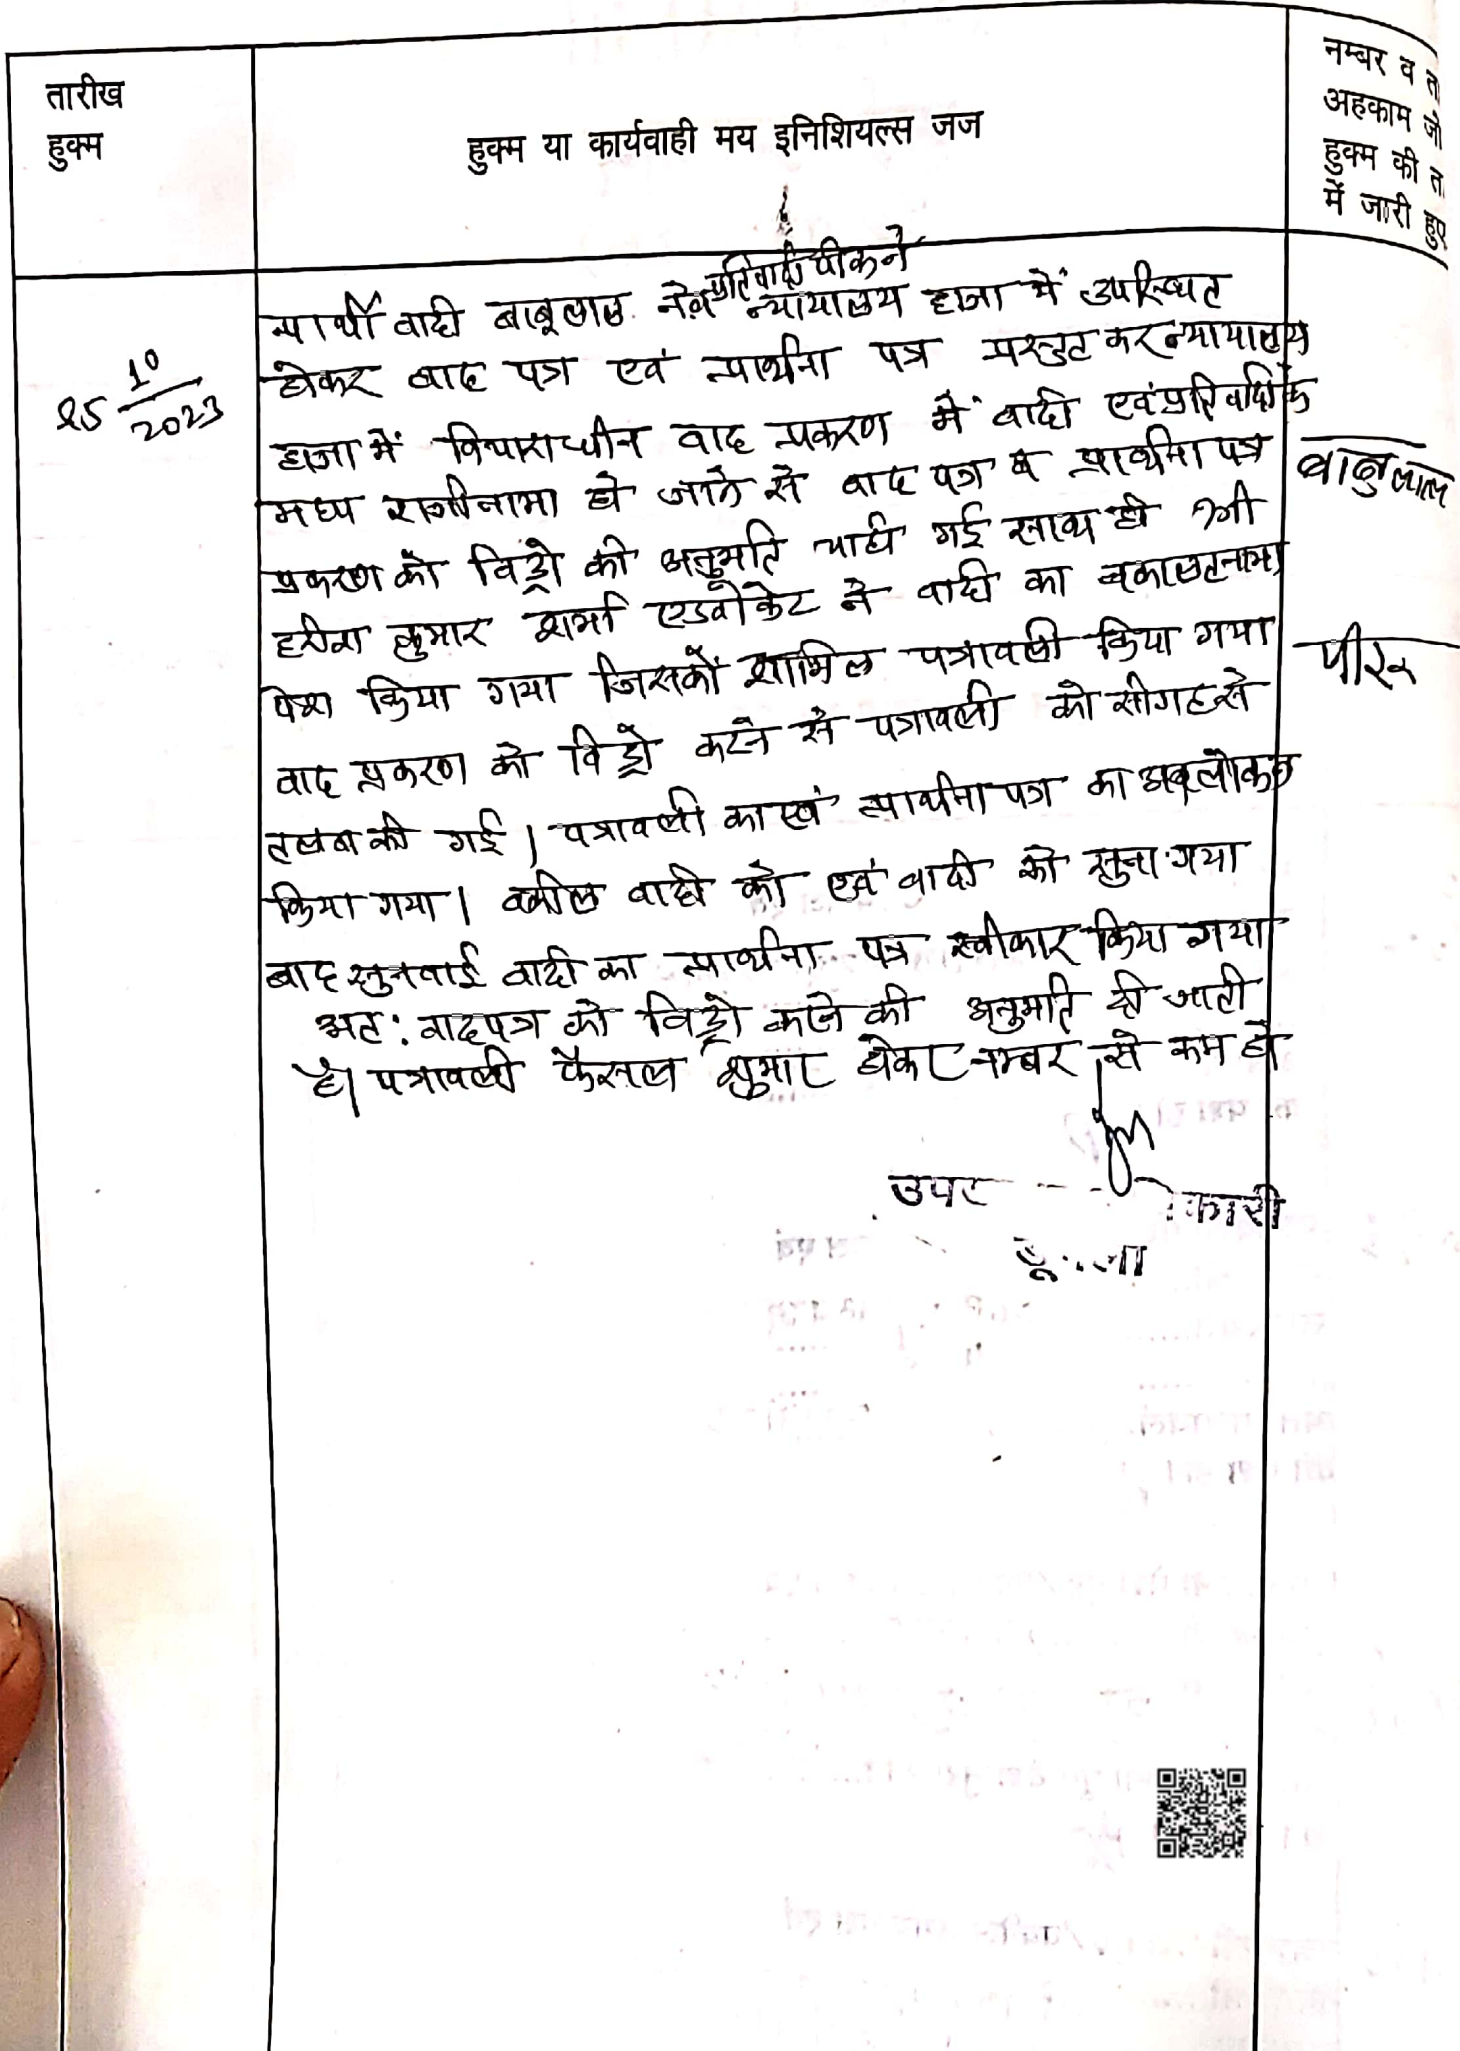 तारीख
हुक्म
हुक्म या कार्यवाही मय इनिशियल्स जज
नम्बर व
अहकाम जो
हुक्म की
में जारी हुए
25 10/2023
प्रतिवादी पीरू ने
प्रार्थी वादी बाबूलाल ने व न्यायालय हाजा में उपस्थित
होकर वाद पत्र एवं प्रार्थना पत्र प्रस्तुत कर न्यायालय
हाजा में विचाराधीन वाद प्रकरण में वादी एवं प्रतिवादी के
मध्य राजीनामा हो जाने से वाद पत्र व प्रार्थना पत्र
प्रकरण को विड्रो की अनुमति चाही गई साथ ही श्री
कुमार शर्मा एडवोकेट ने वादी का वकालतनामा
पेश किया गया जिसको शामिल पत्रावली किया गया
वाद प्रकरण को विड्रो करने से पत्रावली को सीगह से
तलब की गई। पत्रावली का एवं प्रार्थना पत्र का अवलोकन
किया गया। वकील वादी को एवं वादी को सुना गया
बाद सुनवाई वादी का प्रार्थना पत्र स्वीकार किया गया
अत: वादपत्र को विड्रो करने की अनुमति दी जाती
है। पत्रावली फैसल शुमार होकर नम्बर से कम हो
बाबुलाल
पीरू